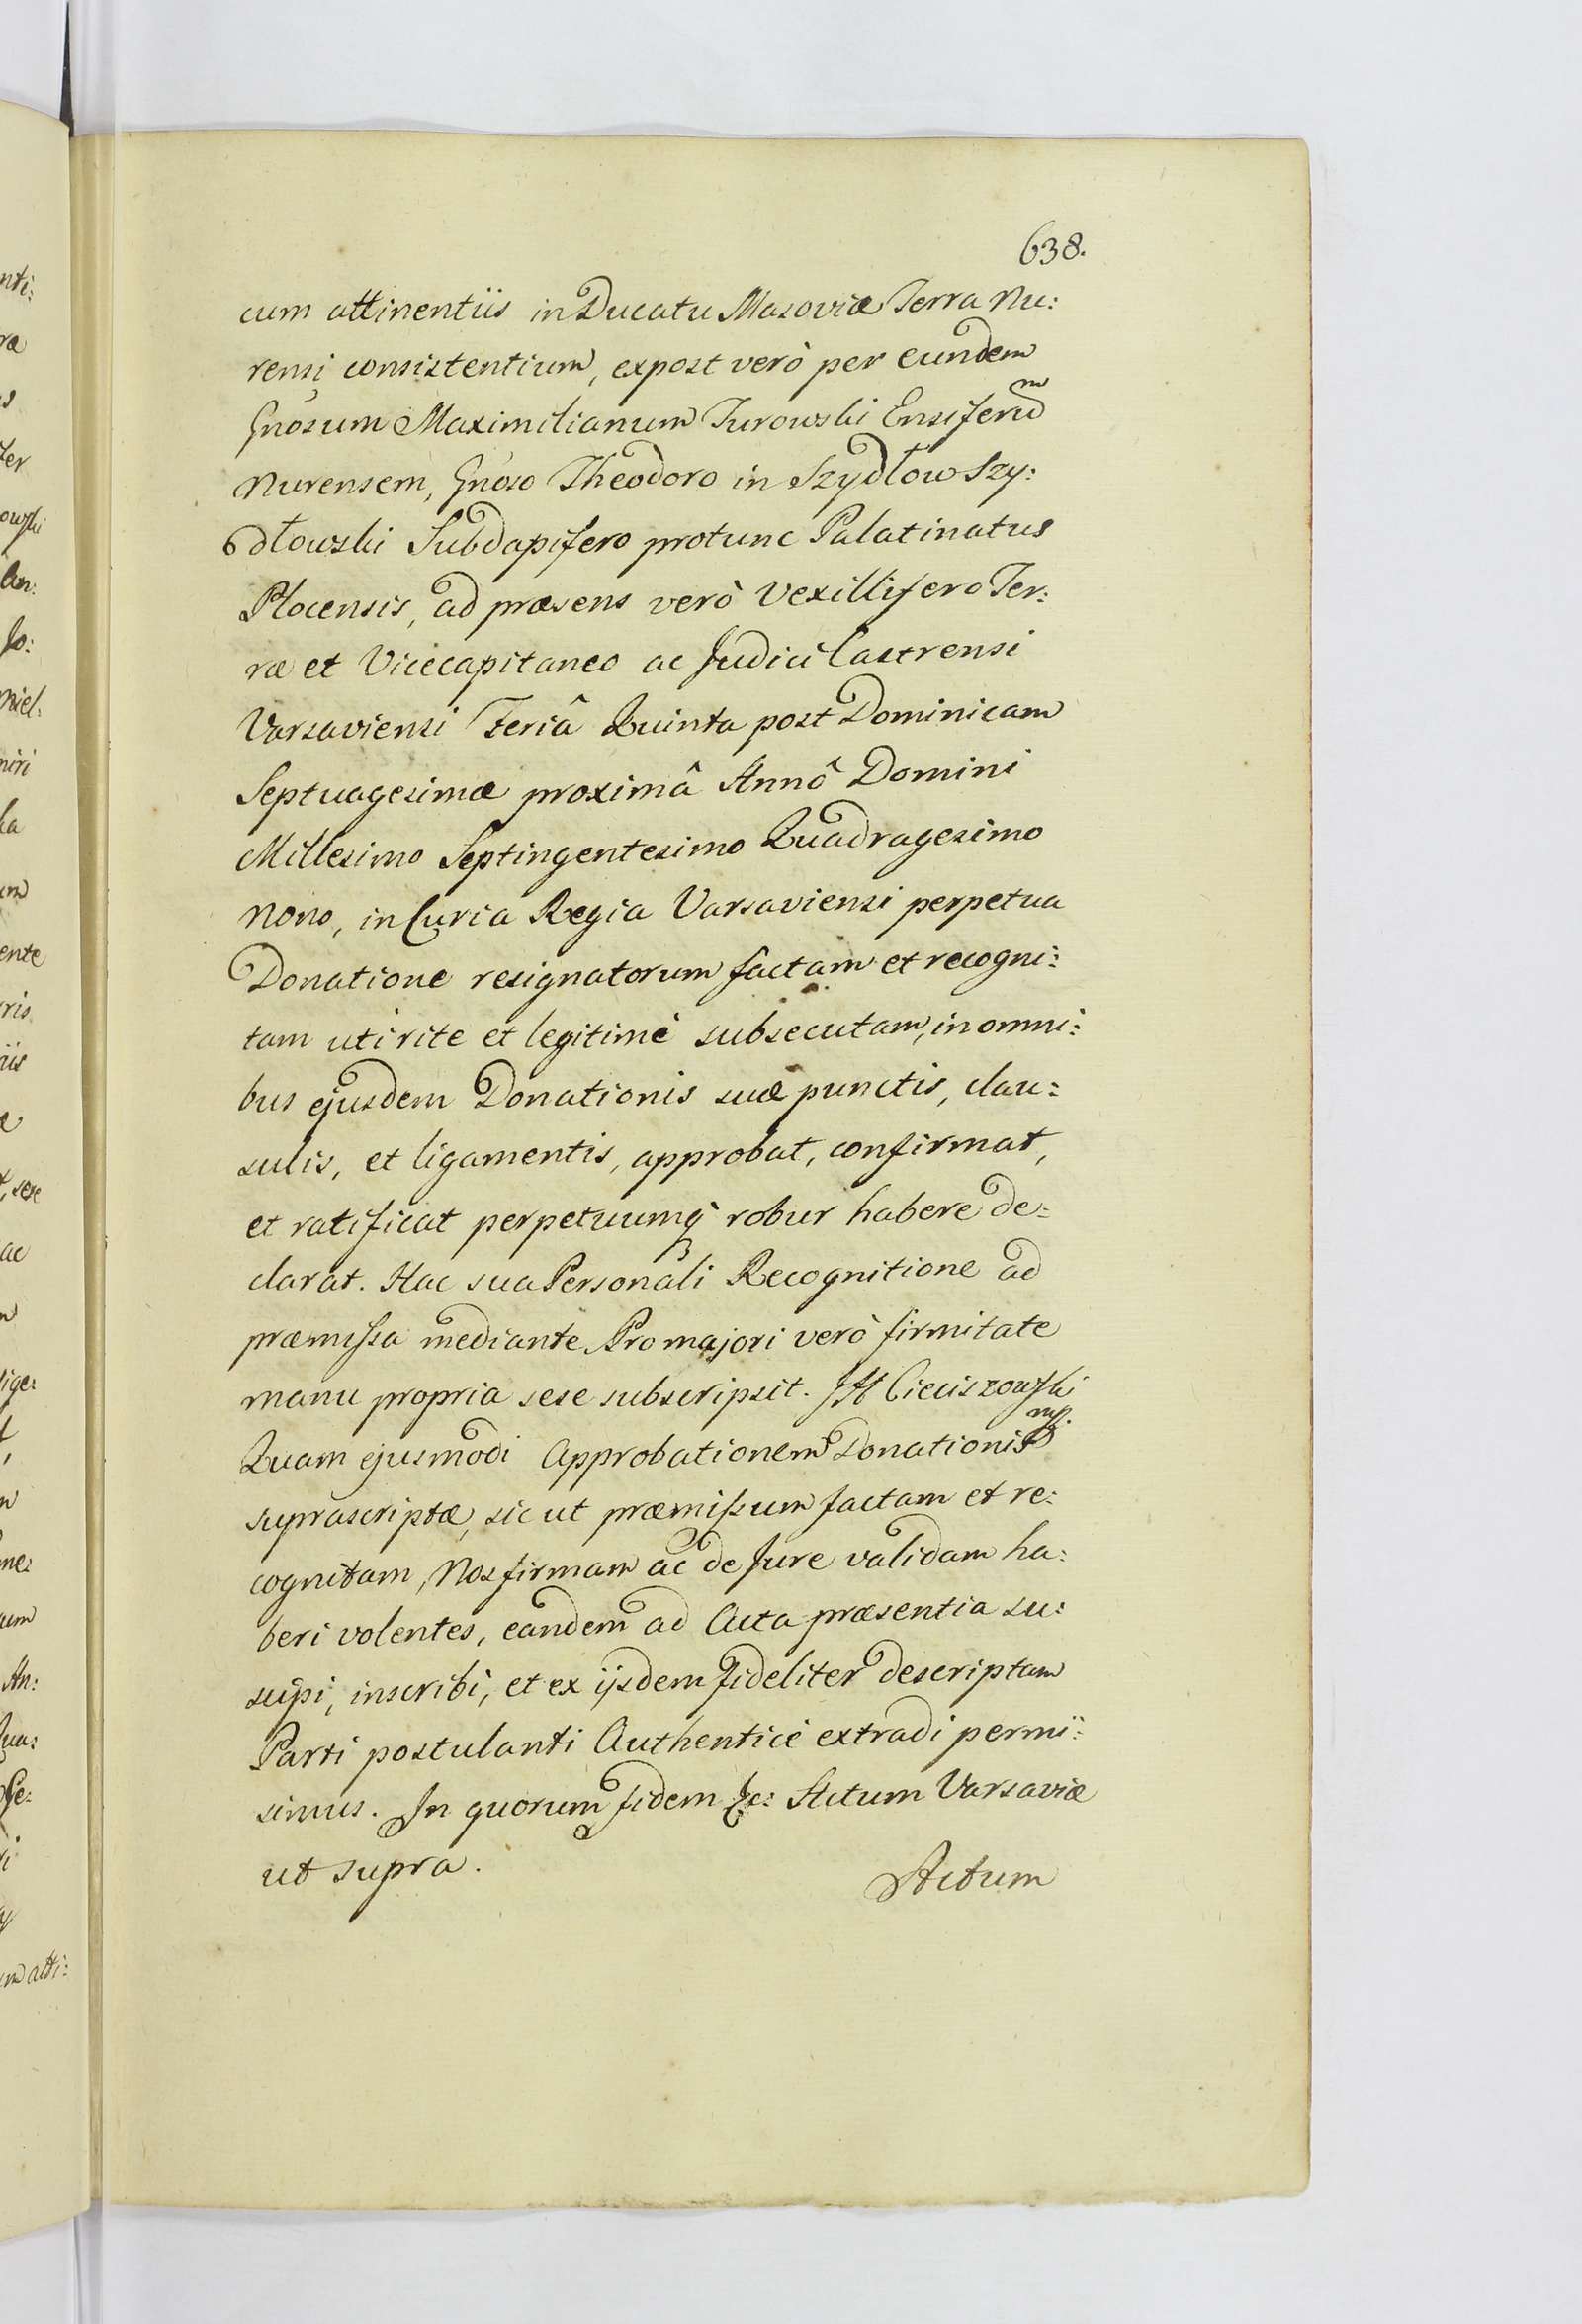 638.
cum attinentiis in Ducatu Masoviæ Terra Nu:
rensi consistentium, expost verò per eundem
Gnosum Maximilianum Turowski Ensiferum
Nurensem, Gnoso Theodoro in Szydłow Szy:
dłowski Subdapifero protunc Palatinatus
Plocensis, ad præsens verò Vexillifero Ter:
ræ et Vicecapitaneo ac Judici Castrensi
Varsaviensi Feriâ Quinta post Dominicam
Septuagesimæ proximâ Annô Domini
Millesimo Septingentesimo Quadragesimo
Nono, in Curia Regia Varsaviensi perpetua
Donatione resignatorum factam et recogni:
tam uti rite et legitimè subsecutam, in omni:
bus ejusdem Donationis suæ punctis, clau:
sulis, et ligamentis, approbat, confirmat,
et ratificat perpetuumq robur habere de:
clarat. Hac sua Personali Recognitione ad
præmissa mediante Pro majori verò firmitate
manu propria sese subscripsit. Cieciszowski
mp.
Quam ejusmodi Approbationem Donationis
suprascriptæ, sic ut præmissum factam et re:
cognitam, Nos firmam ac de Jure validam ha:
beri volentes, eandem ad Acta præsentia su:
scipi, inscribi, et ex ijsdem fideliter descriptam
Parti postulanti Authenticè extradi permi:
simus. In quorum fidem &c: Actum Varsaviæ
ut supra.
Actum